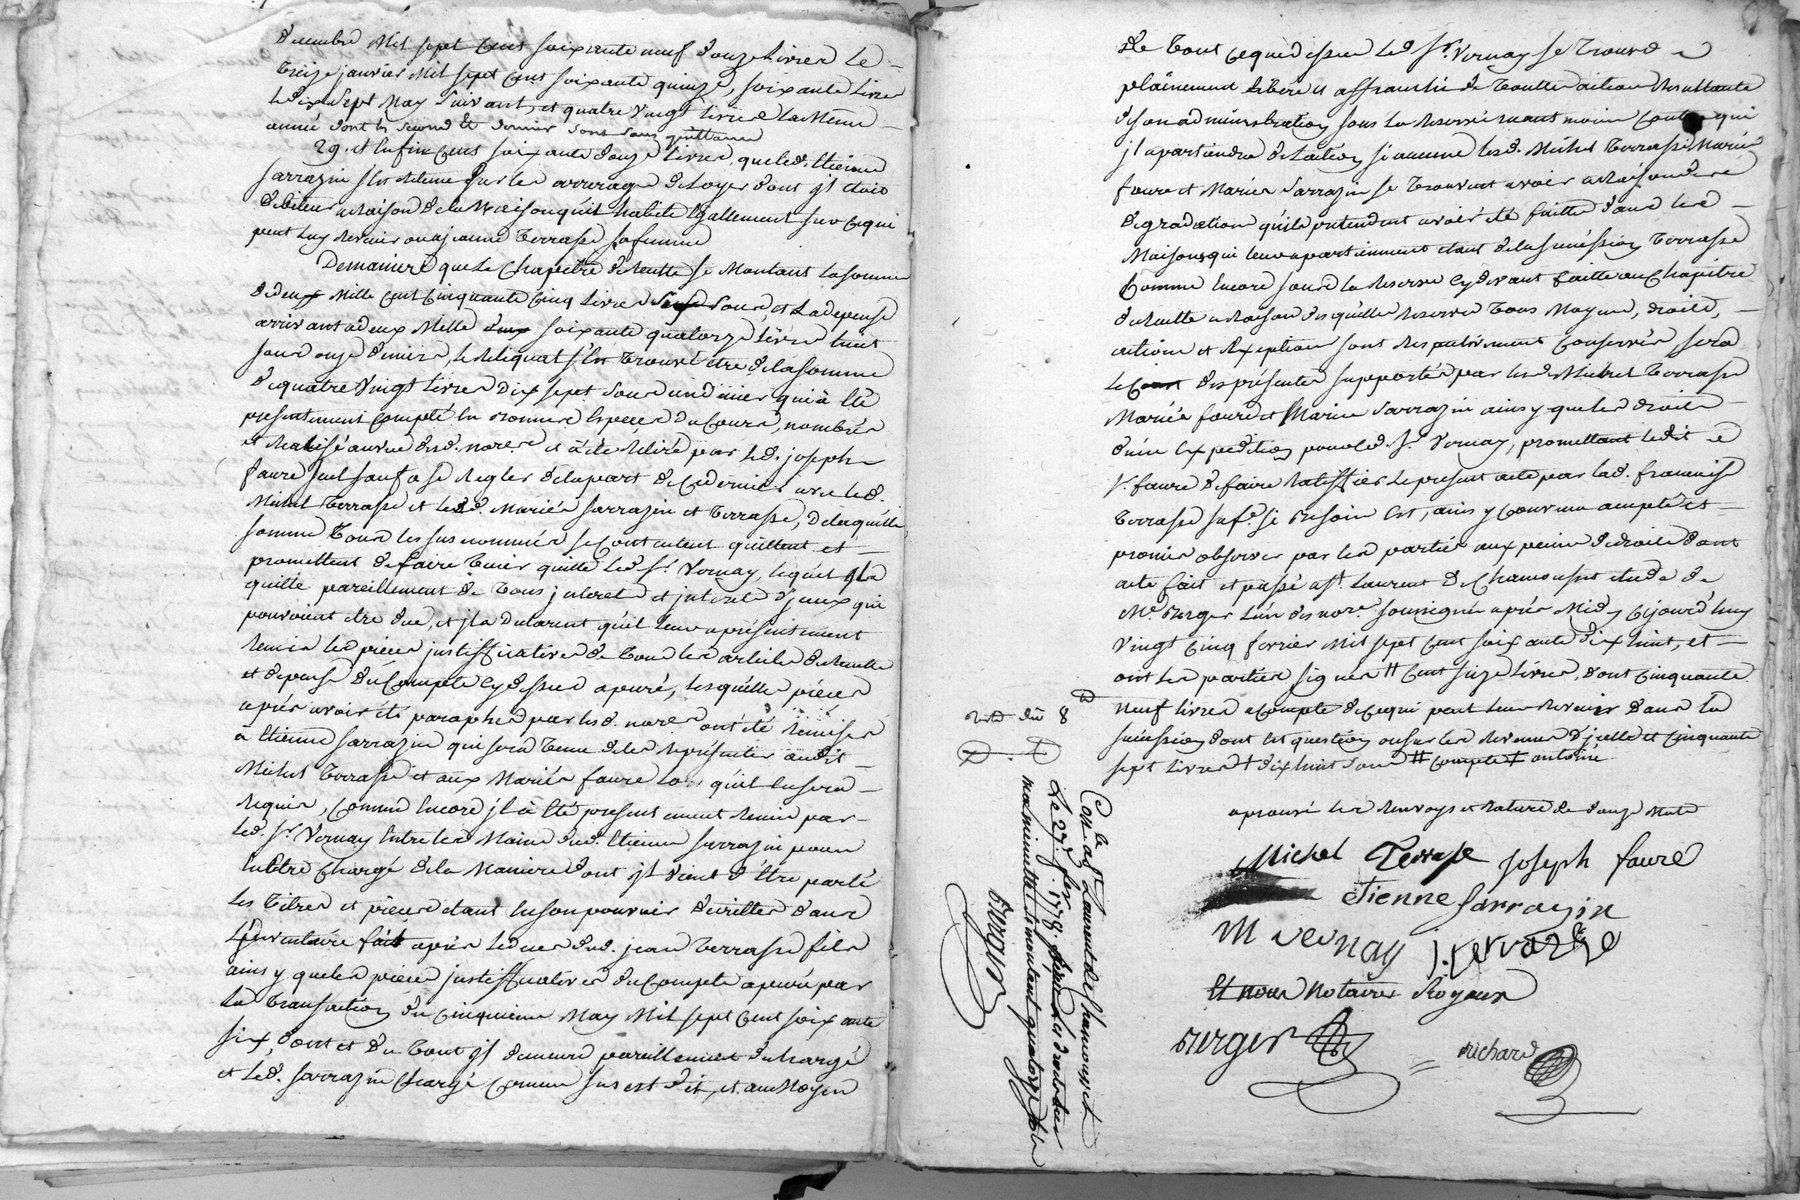 Decembre Mil sept Cent soixente neuf douze Livres le
treize janvier Mil sept Cent soixante quinze, soixante Livres
le dix sept May suivant, et quatre vingt livres la Meme
année dont le second et dernier sont sans quittance
29. et Enfin Cent soixante douze Livres, que led. Etienne
sarrazin s'est retenue sur les arrerages de Loyer dont il etoit
debiteur a Raison de la Maison qu'il habite Egallement sur ce qui
peut luy Revenir ou a jeanne Terrasse sa femme
De maniere que le Chapitre de Recette se Montant la somme
de deux Mille Cent Cinquante Cinq Livres sous et la depense
arrivant a deux Mille soixante quatorze Livres huit
sous onze deniers, le Reliquat s'est trouvé etre de la somme
de quatre vingt Livres dix sept sous un denier qui à été
presentement Compté En bonnes Especes du Cours, nombrés
et Realisé au vue desd. nores. et à été Retiré par led. joseph
faure seul sauf a se Regler de la part de Ce dernier avec led.
Michel Terrasse et lesd. Mariés sarrazin et Terrasse, de laquelle
somme Tous les sus nommés se Contentent quittent et
promettent de faire tenir quitte led. Sr. Vernay, lequel Est
quitte pareillement de Tous interet et interets d'iceux qui
pouvoient etre due, et ils declarent qu'il leur a présentement
Remis les pièces justifficatives de Tous les articles de Recette
et depense du Compte Cy dessus apuré, lesquelles pièces
après avoir été paraphés par lesd. nores. ont été Remises
à Etienne sarrazin qui sera Tenu de les Représenter audit
Michel Terrasse et aux Mariés faure lors qu'il En sera
Requis, Comme Encore il à été presentement Remis par
led. Sr. Vernay Entre les Mains dud. Etienne sarrazin pour
En Etre Chargé de la Maniere dont il vient d'Etre parlé
les Titres et pièces etant En son pouvoir deciretter dans
L'inventaire fait après le deces dud. jean Terrasse fils
ainsy que les pièces justifficatives du Compte apuré par
La Transaction du Cinquieme May Mil sept Cent soixante
six, dont et du Tout il demeure pareillement dechargé
et led. sarrazin Chargé Comme sus est dit, et au Moyen
De Tout Ce que dessus led. Sr. Vernay se Trouve
plainement Libéré et affranchi de Toutte action Resultante
de son administration sous la Reserve neant moins Contre qui
il apartiendra de l'action si aucune lesd. Michel Terrasse Mariés
faure et Mariés sarrazin se Trouvent avoir a Raison des
degradation qu'ils pretendent avoir été faitte dans les
Maisons qui leur apartiennent etant de la succession Terrasse
Comme Encore sous la Reserve Cy devant faitte au Chapitre
de Recette a Raison desquelles Reserves Tous Moyens, droits,
actions et Exeption sont Respectivement Conservés, sera
le Cout des présentes supportés par lesd. Michel Terrasse
Mariés faure et Mariés sarrazin ainsy que les droits
d'une Expedition pour led. Sr. Vernay, promettant ledit
Sr. faure de faire Ratiffier le present acte par lad. francoise
Terrasse sa fe. si Besoin Est, ainsy Convenu accepté et
promis observer par les parties aux peines de droits dont
acte fait et passé a St. Laurent de Chamousset etude de
Me. Berger L'un des nores. soussignés après Midy Cejourd'huy
vingt Cinq fevrier Mil sept Cent soixante dix huit, et
ont les parties signés # Cent seize Livres, dont Cinquante
neuf livres a Compte de Ce qui peut leur Revenir dans la
succession dont Est question ou sur les Revenus d'icelle et Cinquante
sept Livres + dix huit sous ++ Compte ++ antoine
aprouvé les Renvoys et Rature de douze Mots
Michel Terrasse joseph faure
etienne sarrazin
M vernay
Et nous Notaires Royaux
Berger
Richard
du 8
Conle. a St. Laurent de Chamousset
Le 27. fev. 1778.
Berger